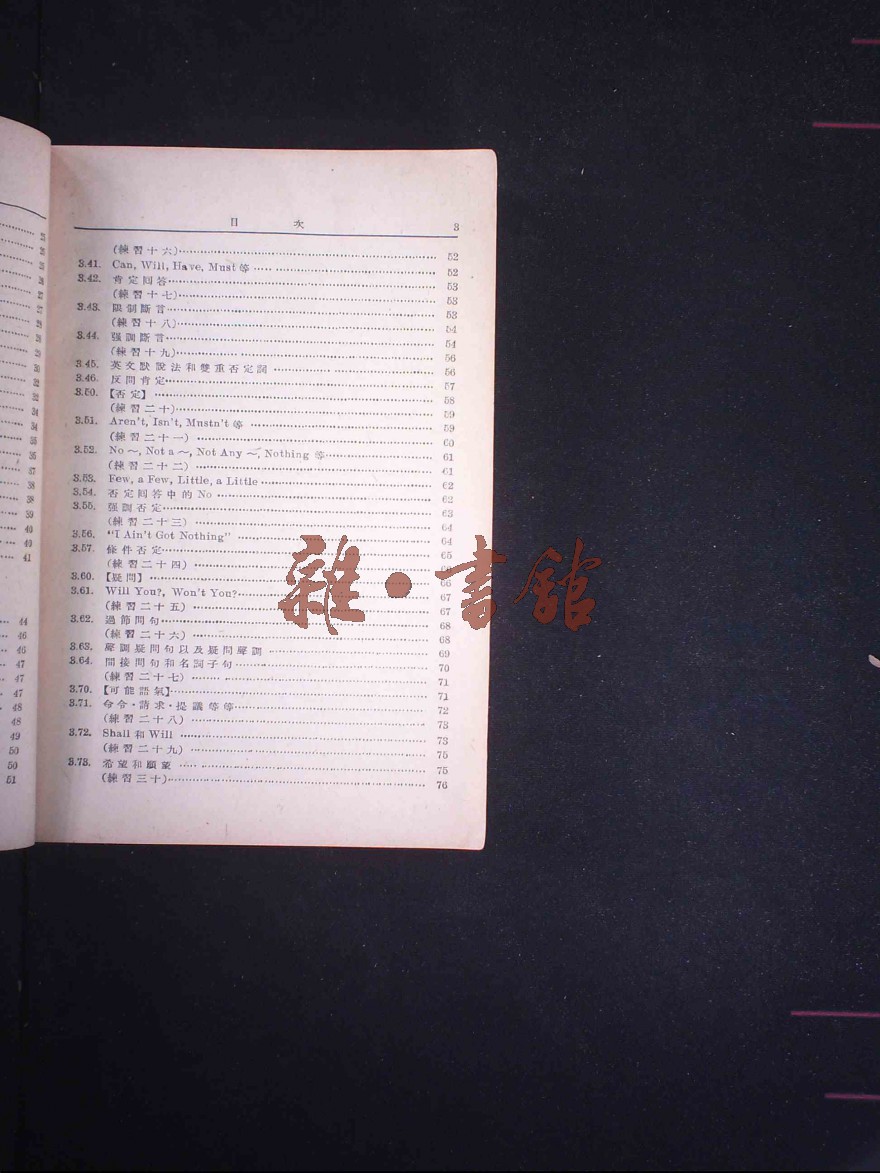 目 次 3
(練習十六) 52
3.41. Can, Will, Have, Must 等 52
3.42. 肯定回答 53
(練習十七) 53
3.43. 限制斷言 53
(練習十八) 54
3.44. 强調斷言 54
(練習十九) 56
3.45. 英文默說法和雙重否定詞 56
3.46. 反問肯定 57
3.50. 【否定】 58
(練習二十) 59
3.51. Aren't, Isn't, Mustn't 等 59
(練習二十一) 60
3.52. No ~, Not a ~, Not Any ~, Nothing 等 61
(練習二十二) 61
3.53. Few, a Few, Little, a Little 62
3.54. 否定回答中的 No 62
3.55. 强調否定 63
(練習二十三) 64
3.56. "I Ain't Got Nothing" 64
3.57. 條件否定 65
(練習二十四) 66
3.60. 【疑問】 66
3.61. Will You?, Won't You? 67
(練習二十五) 67
3.62. 過節問句 68
(練習二十六) 68
3.63. 聲調疑問句以及疑問聲調 69
3.64. 間接問句和名詞子句 70
(練習二十七) 71
3.70. 【可能語氣】 71
3.71. 命令·請求·提議等等 72
(練習二十八) 73
3.72. Shall 和 Will 73
(練習二十九) 75
3.73. 希望和願望 75
(練習三十) 76
雜·書館
37
38
38
39
40
40
41
44
46
46
47
47
47
48
48
49
50
50
51